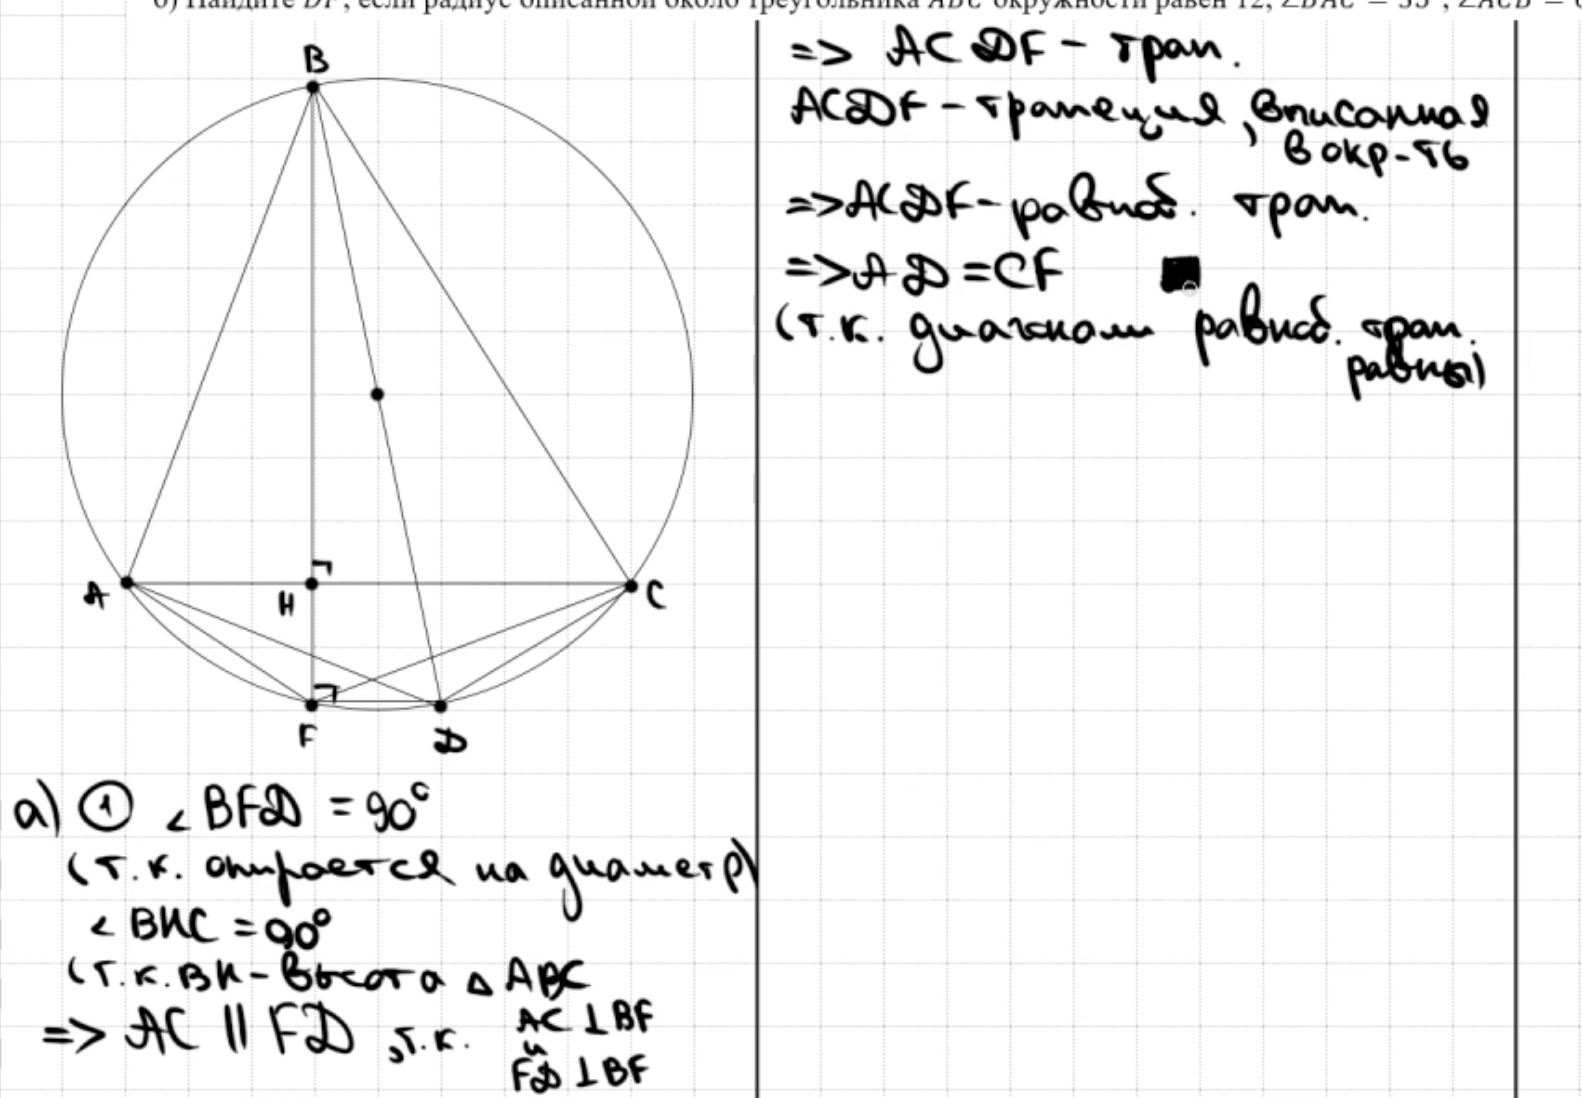 б) Найдите DF, если радиус описанной около треугольника ABC окружности равен 12, ∠BAC = 35°, ∠ACB =
B
A
H
C
F
D
а) ① ∠BFD = 90°
(т.к. опирается на диаметр)
∠BHC = 90°
(т.к. BH - высота △ ABC
=> AC || FD , т.к. AC ⊥ BF
и
FD ⊥ BF
=> ACDF - трап.
ACDF - трапеция, вписанная
в окр-ть
=> ACDF - равноб. трап.
=> AD = CF
(т.к. диагонали равноб. трап.
равны)